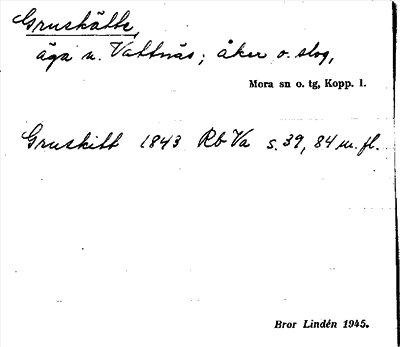 Gruskätte,
äga n. Vattnäs; åker o. slog,
Mora sn o. tg, Kopp. l.
Gruskitt 1843 Rb Va s. 39, 84 m. fl.
Bror Lindén 1945.